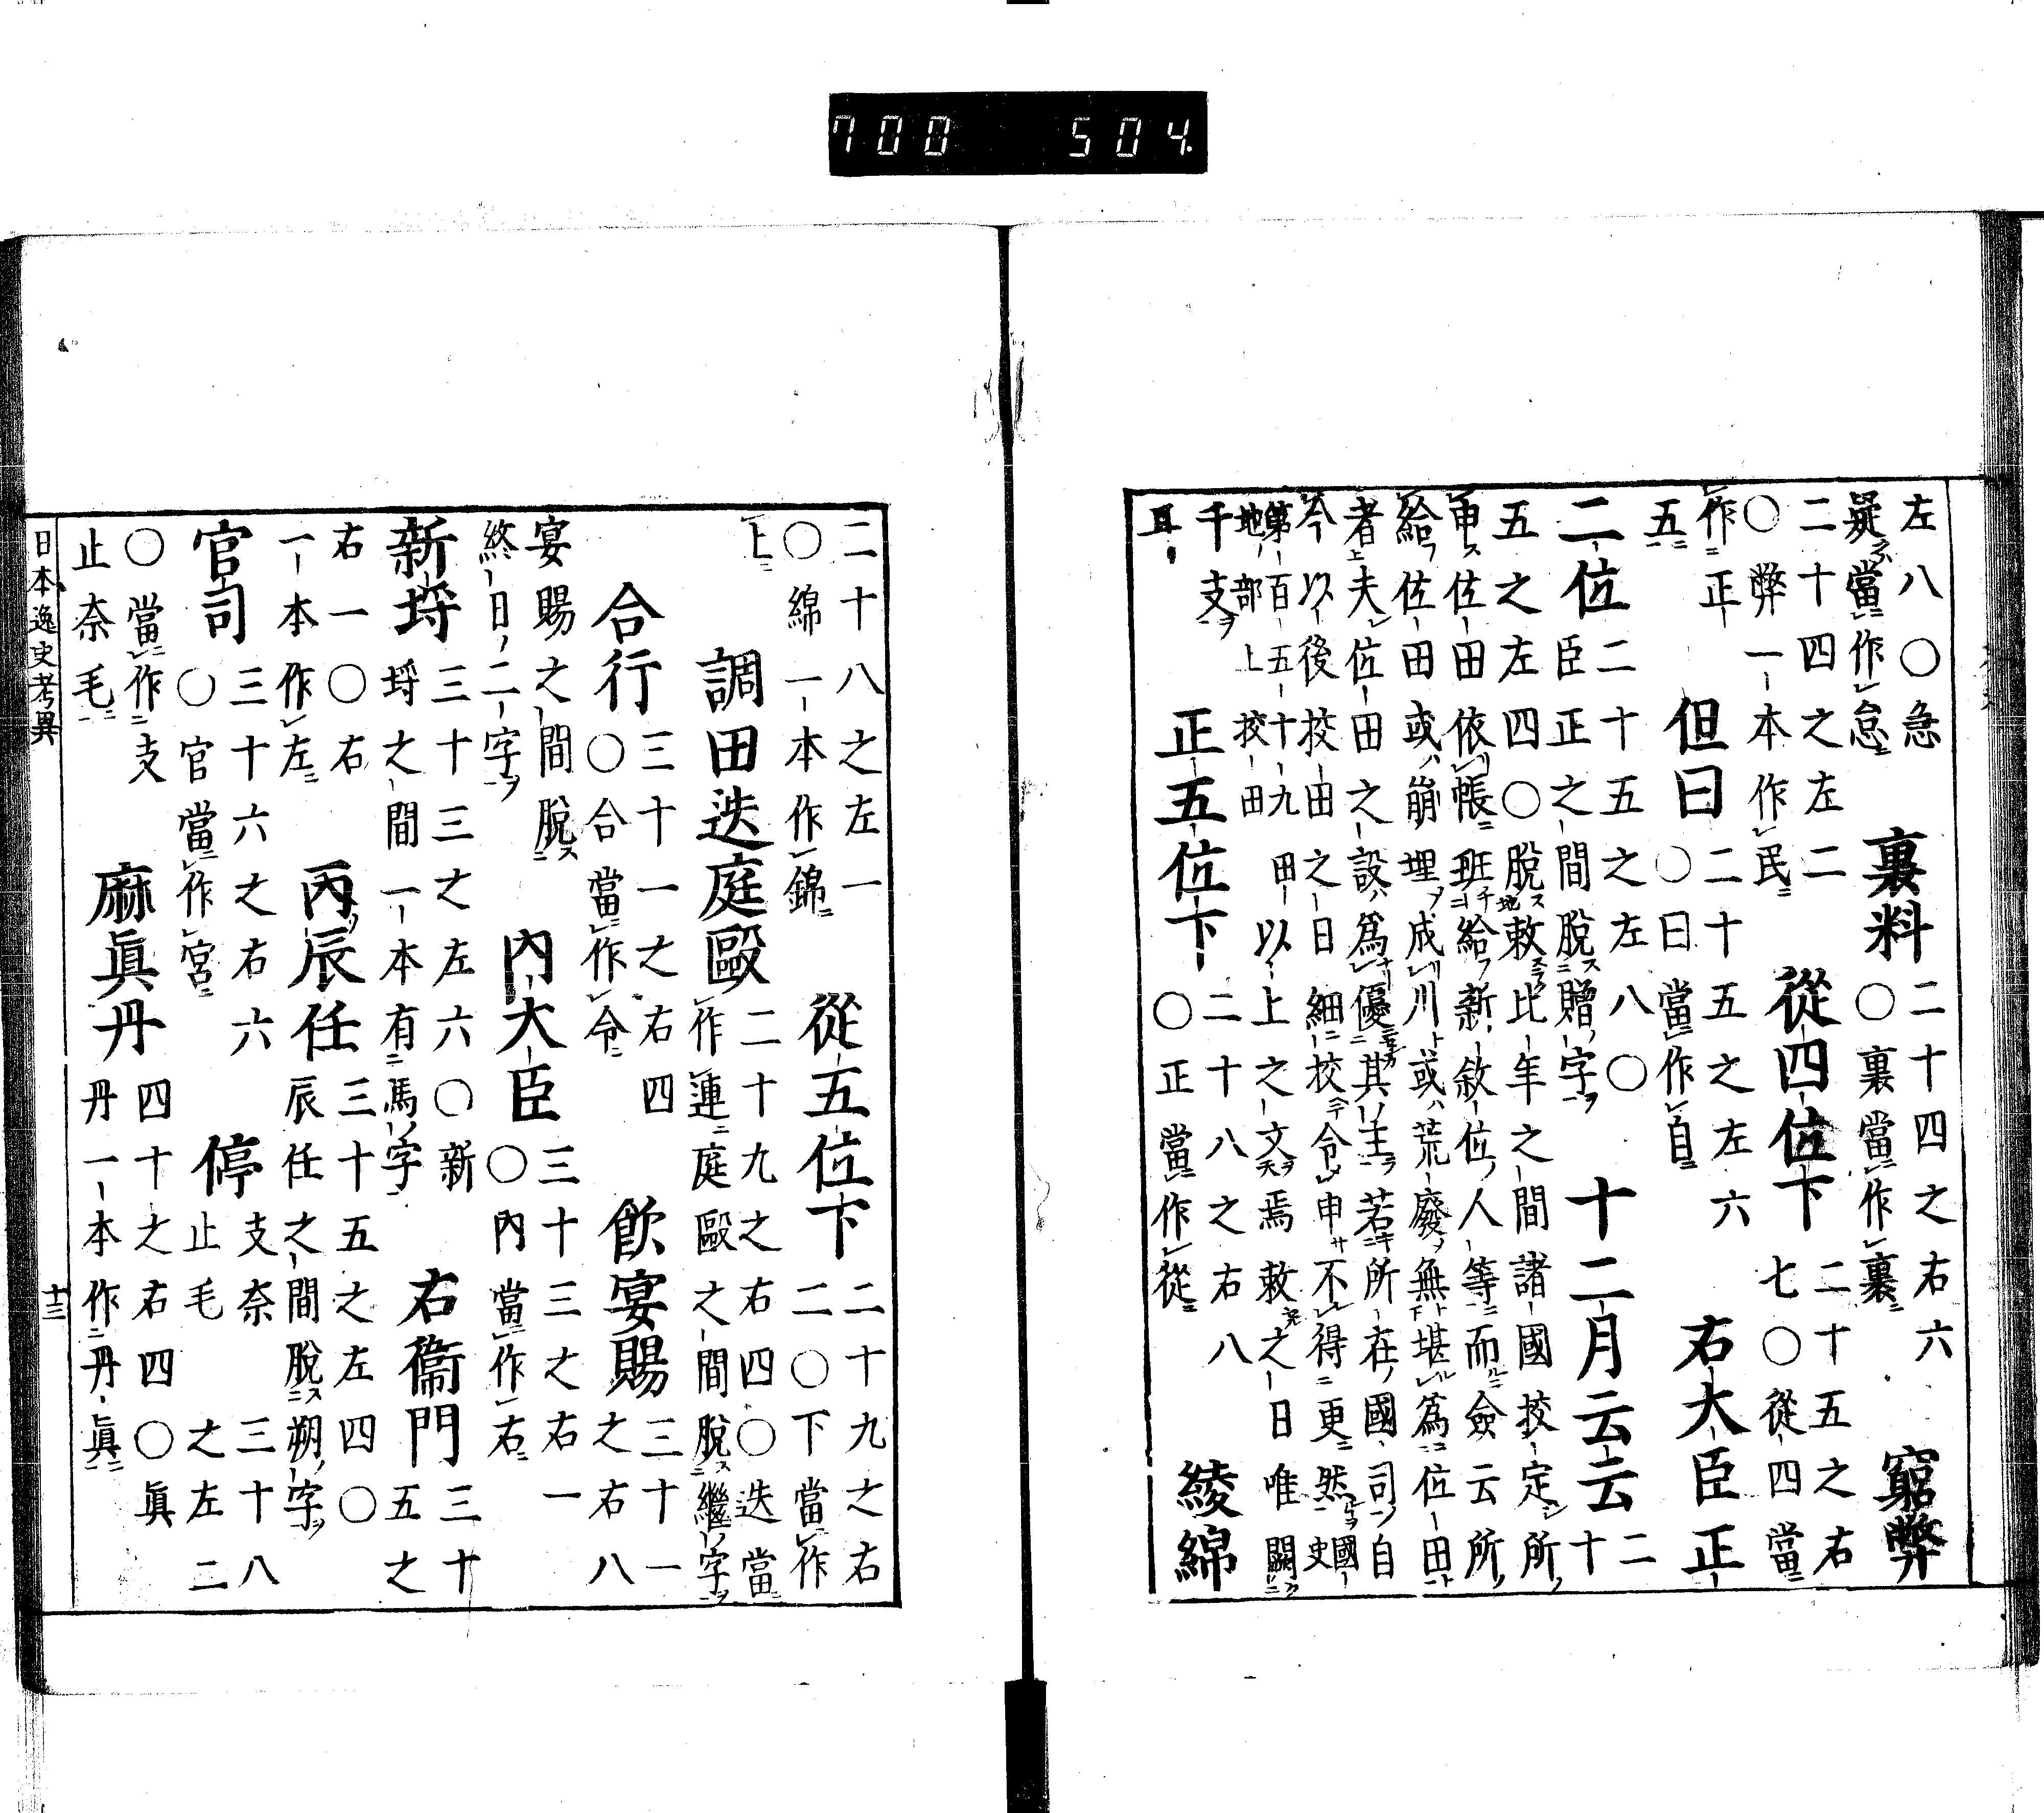 700 504
左八〇急
疑當作怠
裏料
二十四之右六
〇裏當作裹
窮弊
二十四之左二
〇弊一本作民
從四位下
二十五之右
七〇從四當
作正
五
但曰
二十五之左六
〇曰當作自
右大臣正
二位
二十五之左八〇
臣正之間脫贈字
十二月云云
二
十
五之左四〇脫敕比年之間諸國挍定所
申佐田依帳班給新敘位人等而僉云所
給佐田或崩埋成川或荒廢無堪爲位田
者夫位田之設爲優其主若所在國司自
今以後挍田之日細挍令申不得更然國史
第百五十九田以上之文焉敕之日唯闕
地部上挍田
干支
耳
正五位下
二十八之右八
〇正當作從
綾綿
二十八之左一
〇綿一本作錦
從五位下
二十九之右
二〇下當作
上
調田迭庭毆
二十九之右四〇迭當
作連庭毆之間脫繼字
合行
三十一之右四
〇合當作令
飮宴賜
三十一
之右八
宴賜之間脫
終日二字
內大臣
三十三之右一
〇內當作右
新埒
三十三之左六〇新
埒之間一本有馬字
右衞門
三十
五之
右一〇右
一本作左
丙辰任
三十五之左四〇
辰任之間脫朔字
官司
三十六之右六
〇官當作宮
停
支奈
止毛
三十八
之左二
〇當作支
止奈毛
麻眞丹
四十之右四〇眞
丹一本作丹眞
日本逸史考異
十三